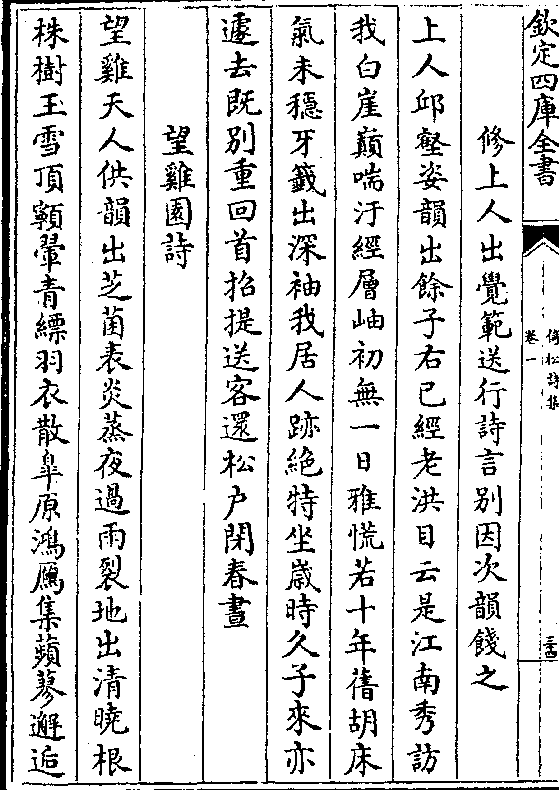 欽定四庫全書
倚松詩集
卷一
修上人出覺範送行詩言別因次韻餞之
上人邱壑姿韻出餘子右已經老洪目云是江南秀訪
我白崖巔喘汙經層岫初無一日雅慌若十年舊胡床
氣未穩牙籤出深袖我居人跡絕特坐歲時久子來亦
遽去既別重回首招提送客還松户閉春晝
望雞園詩
望雞天人供韻出芝菌表炎蒸夜過雨裂地出清曉根
株樹玉雪頂顙暈青縹羽衣散臯原鴻鴈集蘋蓼邂逅